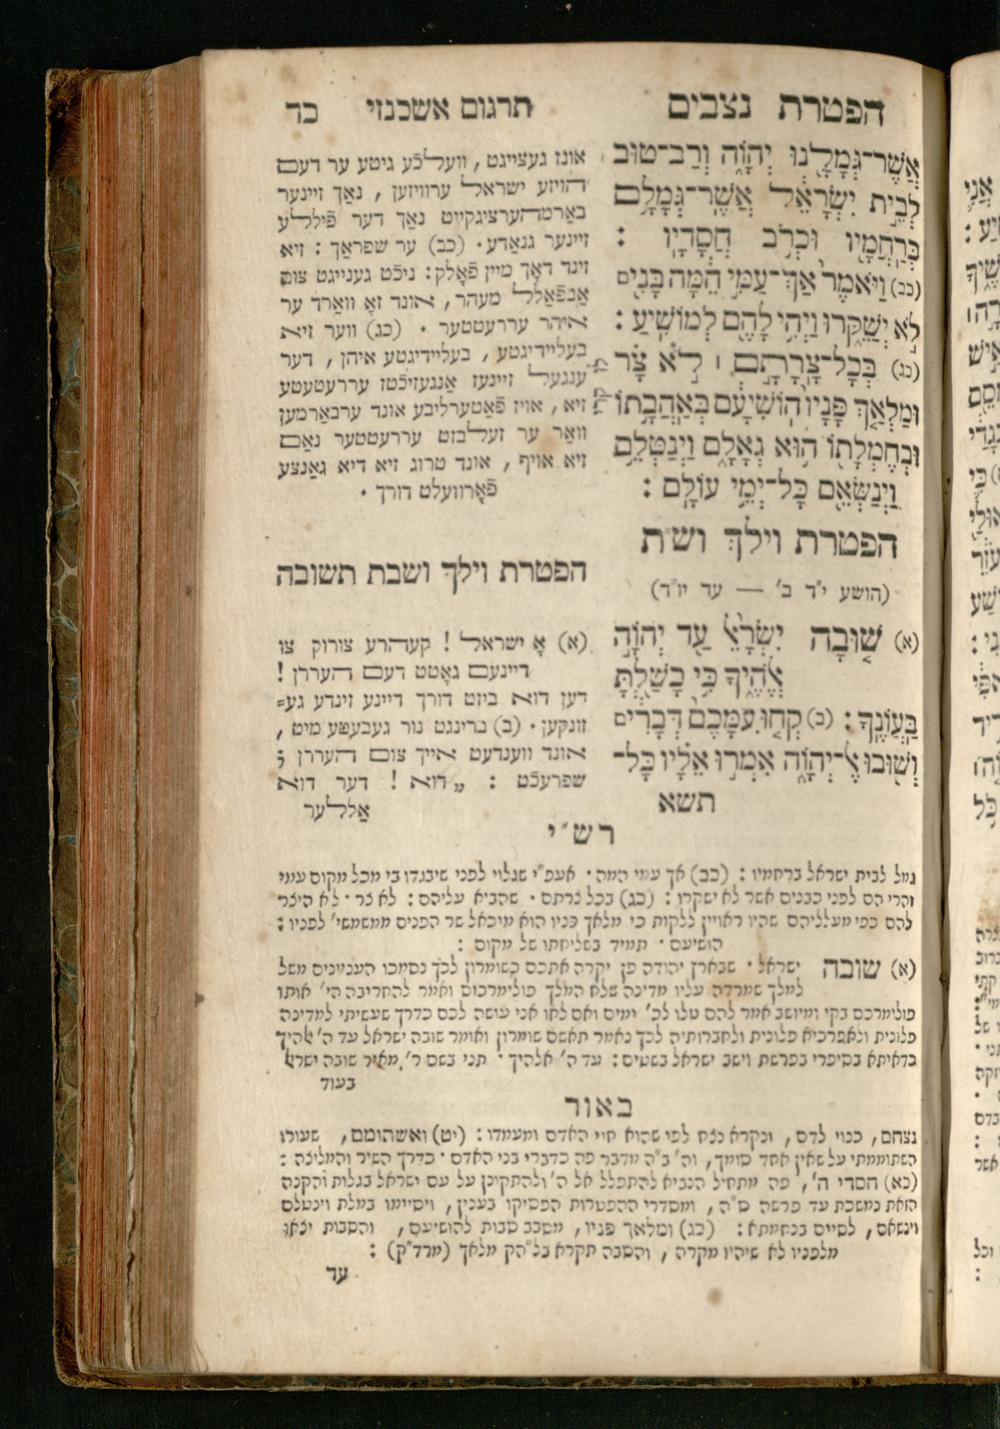 הפטרת נצבים תרגום אשכנזי כד
אֲשֶׁר־גְּמָלָנוּ יְהוָֹה וְרַב־טוּב
לְבֵית יִשְׂרָאֵל אֲשֶׁר־גְּמָלָם
כְּרַחֲמָיו וּכְרֹב חֲסָדָיו :
(כב) וַיֹּאמֶר אַךְ־עַמִּי הֵמָּה בָּנִים
לֹא יְשַׁקֵּרוּ וַיְהִי לָהֶם לְמוֹשִׁיעַ :
(כג) בְּכָל־צָרָתָם ׀ לֹא צָר
וּמַלְאַךְ פָּנָיו הוֹשִׁיעָם בְּאַהֲבָתוֹ
וּבְחֶמְלָתוֹ הוּא גְאָלָם וַיְנַטְּלֵם
וַיְנַשְּׂאֵם כָּל־יְמֵי עוֹלָם :
הפטרת וילך וש״ת
(הושע י״ד ב׳ — עד יו״ד)
(א) שׁוּבָה יִשְׂרָאֵל עַד יְהוָֹה
אֱלֹהֶיךָ כִּי כָשַׁלְתָּ
בַּעֲוֹנֶךָ : (ב) קְחוּ עִמָּכֶם דְּבָרִים
וְשׁוּבוּ אֶל־יְהוָֹה אִמְרוּ אֵלָיו כָּל־
תשא
אונז געצייגט, וועלכֿע גיטע ער דעם
הויזע ישראל ערוויזען , נאַך זיינער
באַרמהערציגקייט נאַך דער פֿיללע
זיינער גנאַדע. (כב) ער שפראַך : זיא
זינד דאָך מיין פאָלק : ניכֿט גענייגט צום
אַבפֿאַלל מעהר, אונד זאָ וואַרד ער
איהר עררעטטער . (כג) ווער זיא
בעליידיגטע , בעליידיגטע איהן , דער
ענגעל זיינעז אַנגעזיכֿטז עררעטעטע
זיא , אויז פֿאַטערליבע אונד ערבאַרמען
וואַר ער זעלבזט עררעטטער נאַם
זיא אויף , אונד טרוג זיא דיא גאַנצע
פֿאָרוועלט דורך .
הפטרת וילך ושבת תשובה
(א) אָ ישראל ! קעהרע צוריק צו
דיינעם גאָטט דעם העררן !
דען דוא ביזט דורך דיינע זינדע גע=
זונקען. (ב) ברינגט נור געבעטע מיט ,
אונד ווענדעט אייך צום העררן ;
שפרעכֿט : „דוא ! דער דוא
אַללער
רש״י
גמל לבית ישראל ברחמיו : (כב) אך עמי המה . אעפ״י שגלוי לפני שיבגדו בי מכל מקום עמי
והרי הם לפני כבנים אשר לא ישקרו : (כג) בכל צרתם . שהביא עליהם : לא צר . לא היצר
להם כפי מעלליהם שהיו ראויין ללקות כי מלאך פניו הוא מיכאל שר הפנים ממשמשי׳ לפניו :
הושיעם . תמיד בשליחתו של מקום :
(א) שובה ישראל . שבארץ יהודה פן יקרה אתכם כשומרון לכך נסמכו הענינים משל
למלך שמרדה עליו מדינה שלח המלך פולימרכוס ואמר להחריבה הי׳ אותו
פולימרכס בקי ומיושב אמר להם טלו לכ׳ ימים ואם לאו אני עושה לכם כדרך שעשיתי למדינה
פלונית ולאפרכיא פלונית ולחברותיה לכך נאמר תאשם שומרון ואומר שובה ישראל עד ה׳ אלהיך
כדאיתא בסיפרי בפרשת וישב ישראל בשטים : עד ה׳ אלהיך . תני בשם ר׳ מאיר שובה ישרא׳
בעוד
באור
נצחם, כנוי לדם, ונקרא נצח לפי שהוא חיי האדם ומעמדו : (יט) ואשתומם, שעורו
השתוממתי על שאין אחד סומך, וה׳ ב״ה מדבר פה כדברי בני האדם . כדרך השיר והמליצה :
(כא) חסדי ה׳, פה מתחיל הנביא להתפלל אל ה׳ ולהתקונן על עם ישראל בגלות והקנה
הזאת נמשכת עד פרשה ס״ה, ומסדרי ההפטרות הפסיקו בענין, וסיימו במלת וינטלם
וינשאם, לסיים בנחמתא : (כג) ומלאך פניו, מסבב סבות להושיעם, והסבות יצאו
מלפניו לא שיהיו מקרה , והסבה תקרא בל״הק מלאך (מרד״ק) :
עד